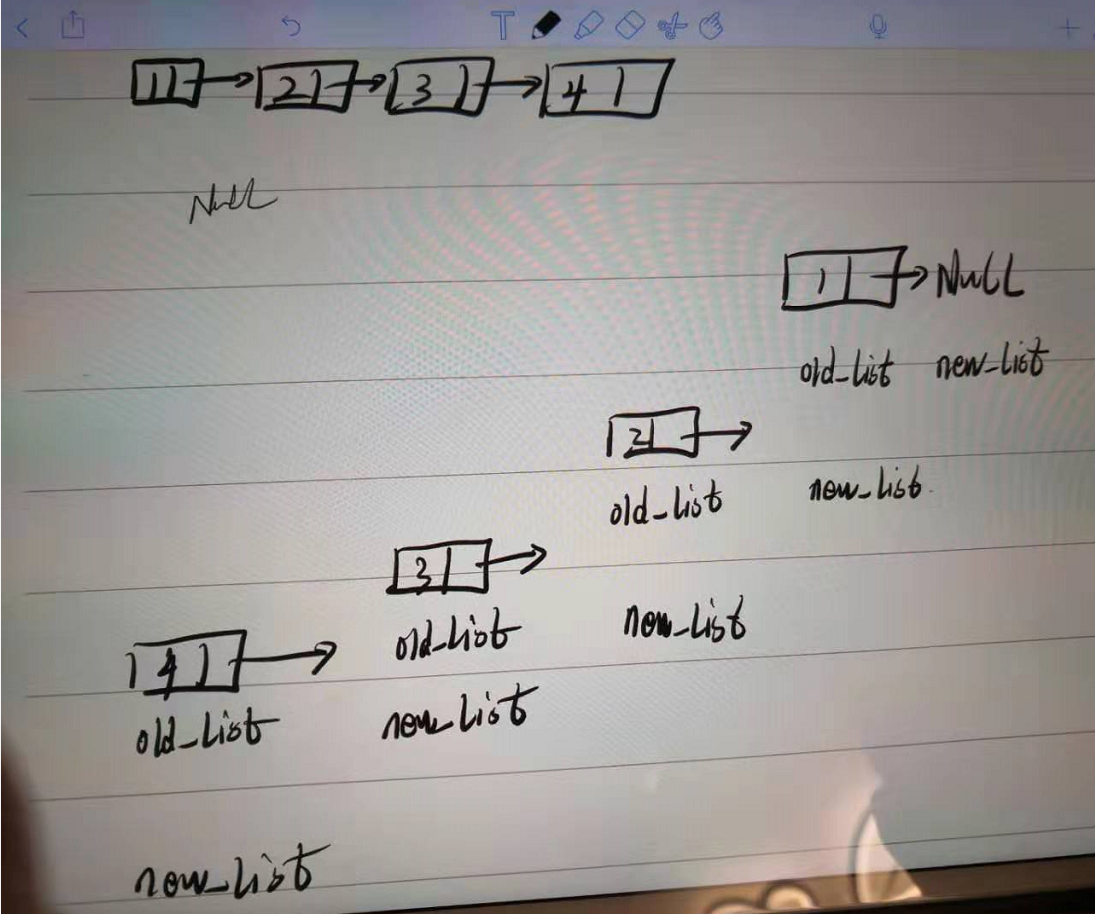 T
1 2 3 4
Null
1 Null
old_list new_list
2
old_list new_list
3
old_list new_list
4
old_list new_list
new_list